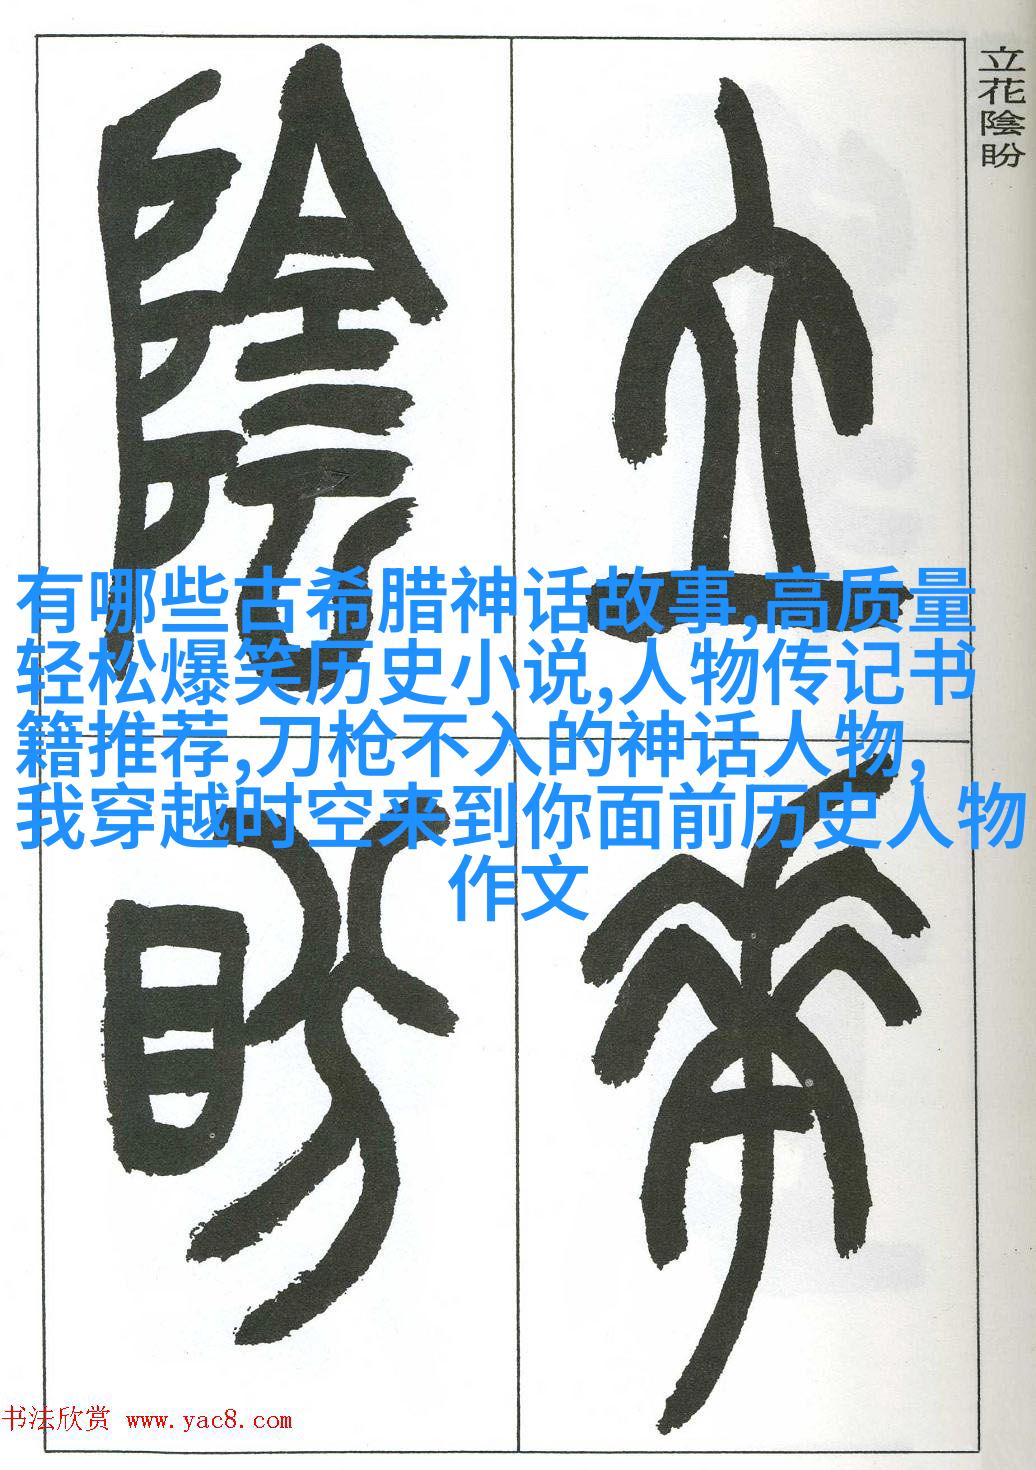 立花陰盼
立
花
陰
盼
有哪些古希腊神话故事,高质量
轻松爆笑历史小说,人物传记书
籍推荐,刀枪不入的神话人物,
我穿越时空来到你面前历史人物
作文
书法欣赏 www.yac8.com